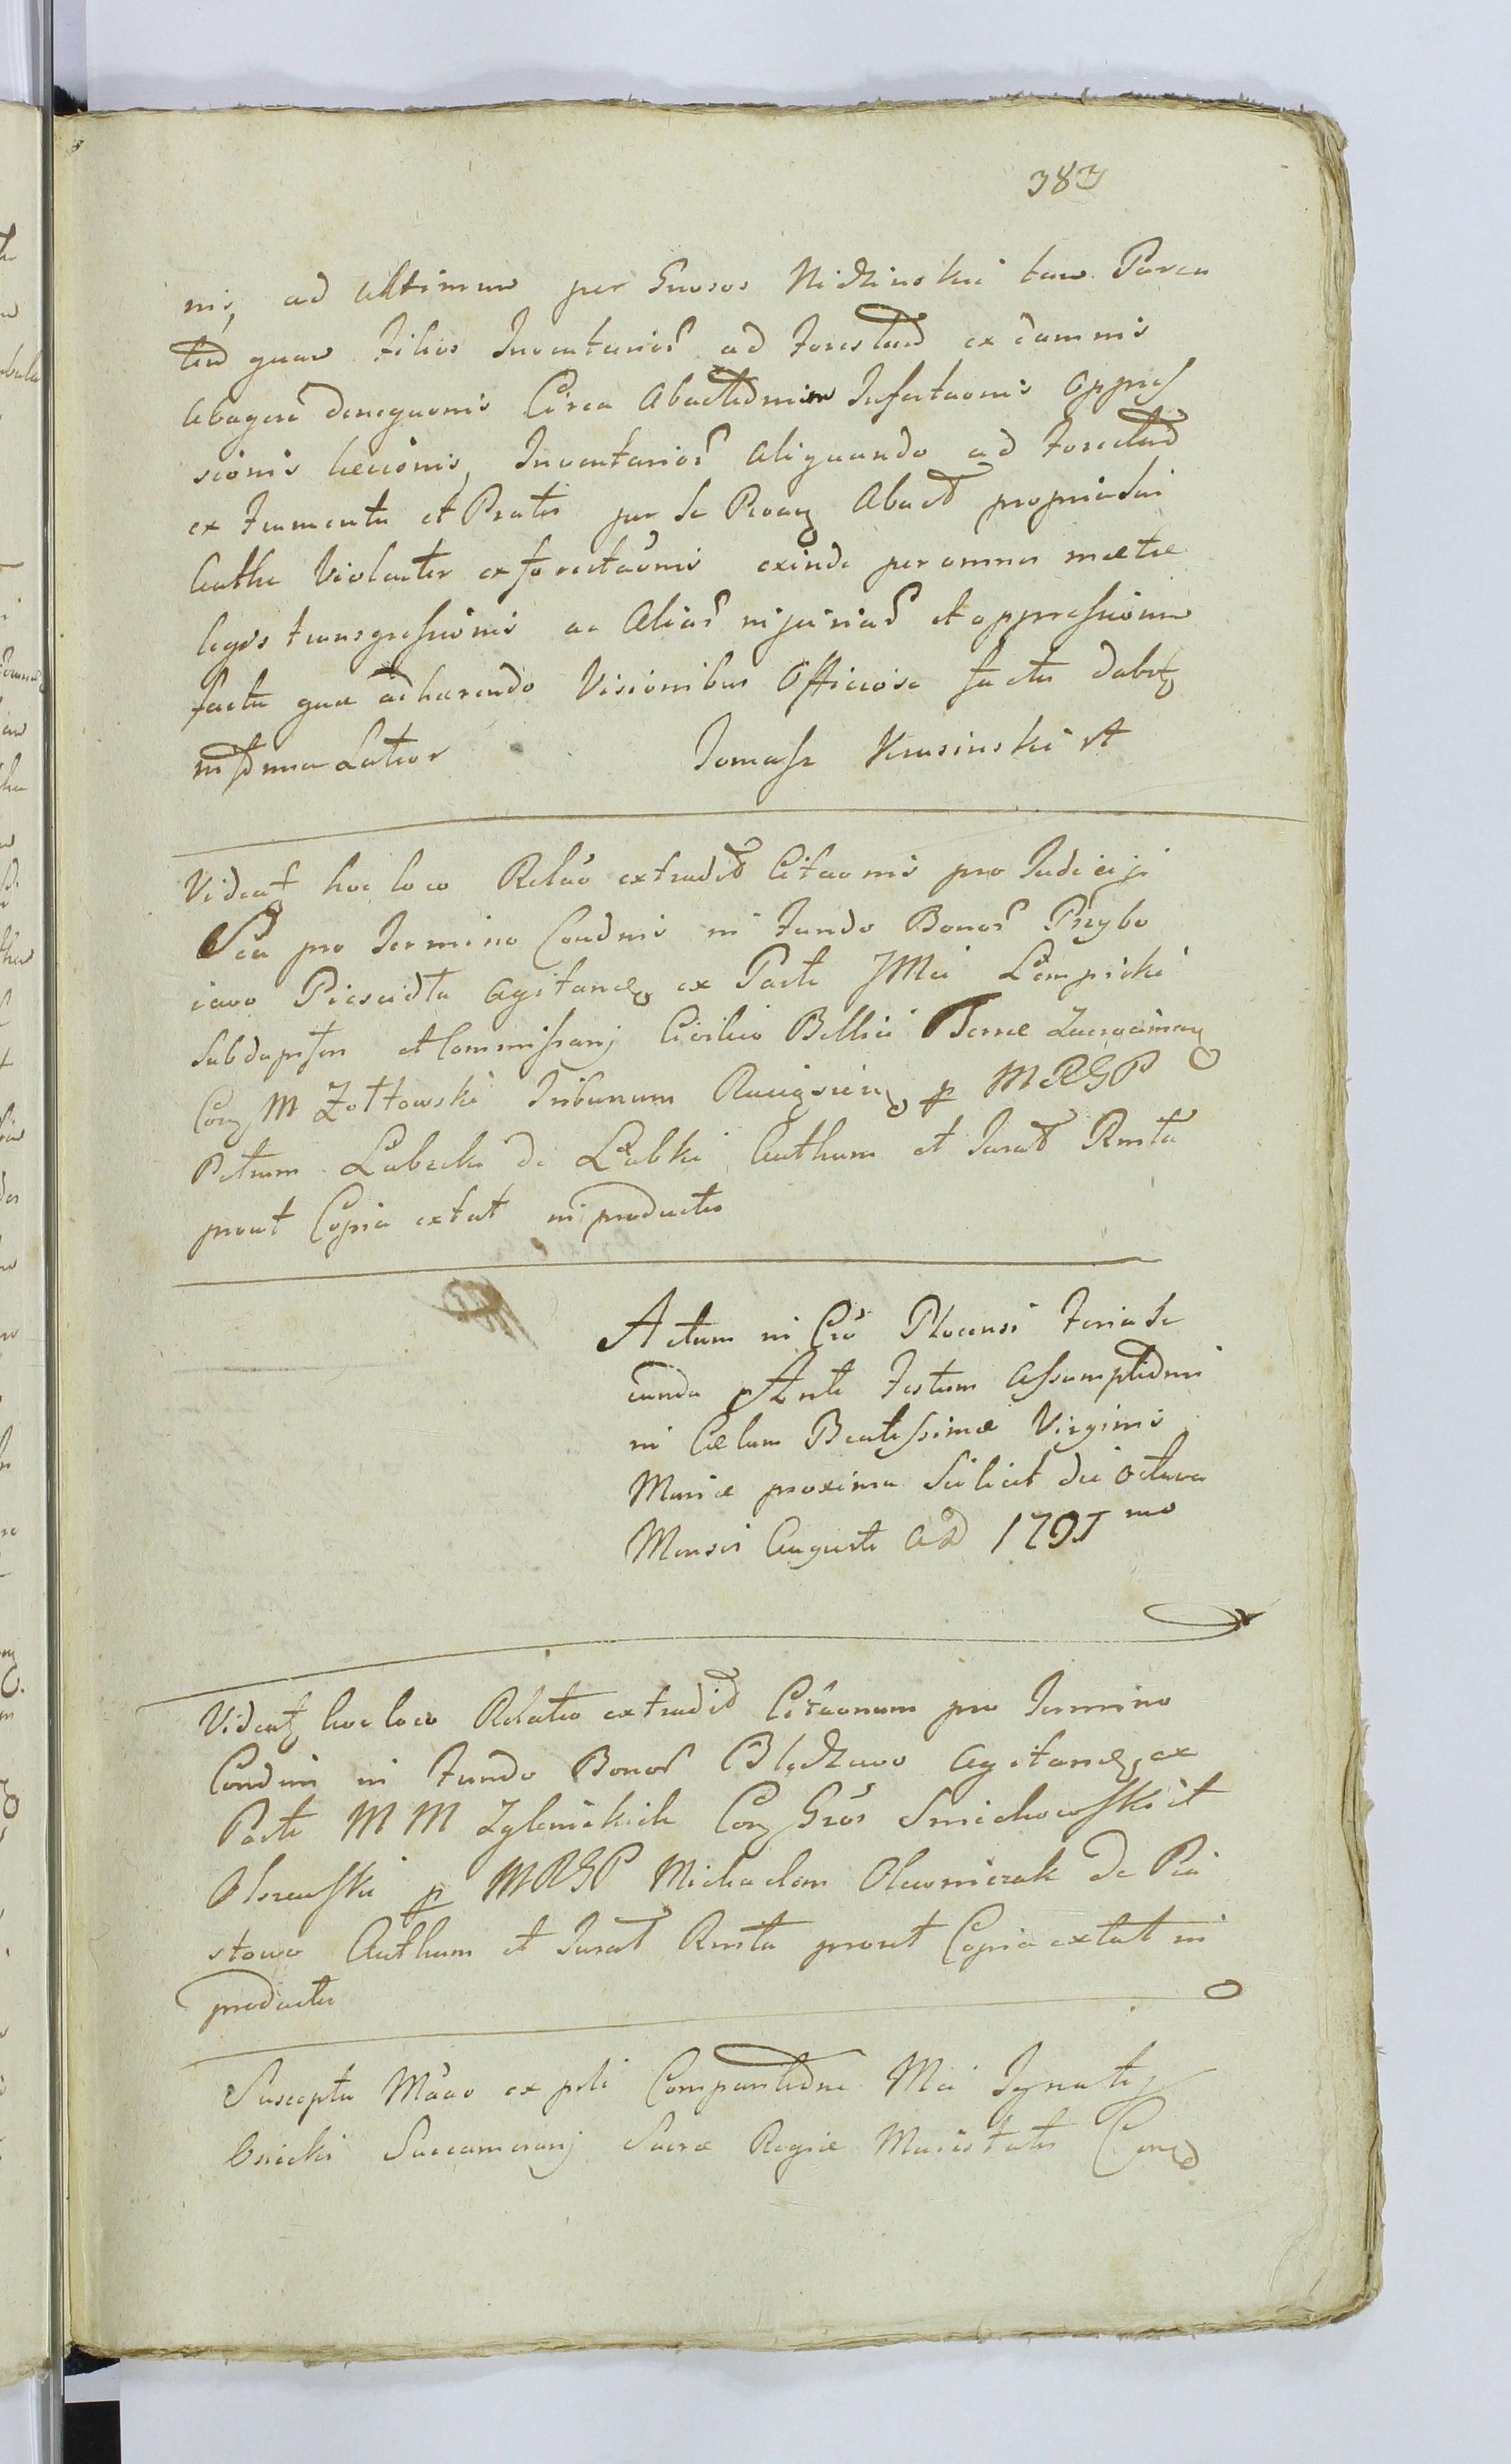 383
nis, ad ultimum per Gnosos Nidzinskie tam Paren
tem quam Filios Inventarior ad Forestam ex damnis
Abagere denegaonis Circa Abactionem Infestaonis oppres
sionis lecionis, Inventarior aliquando ad Forestam
ex Frumentu et Pratis per se Reum Abact propria sui
Authe Violenter exforestaonis exinde per omnes metae
legis transgressionis ac Aliar injuriar et oppressionum
facta quae adhaerendo Visionibus Officiose factis dabitz
infrmalatior Tomasz Krusinski mp
Videatz hoc loco Relao extradit Citaonis pro Judicij
Seu pro Termino Condnis in Fundo Bonor Przybo
iewo agitandz ex Parte JMci Lempicki
Subdapiferi et Commissarij Civilis Bellici Terrae Zacrocimenz
Conz M Zołtowski Tribunum Raciązsienz p MRGP
Petrum Lubecki de Łabki Authum et Jurat Rmta
prout Copia extat in productis
Actum in Cro Plocensi Feria Se
cunda Ante Festum Assumptionis
in Caelum Beatissimae Virginis
Mariae proxima Scilicet die Octava
Mensis Augusti AD 1791 mo
Videatz hoc loco Relatio extradit Citaonum pro Termino
Condnis in Fundo Bonor Blędzewo agitandz ex
Parte MM Zylinskich Conz Gros Smiechowski et
Olszewski p MRGP Michaelem Olewniczak de Pia
stowo Authum et Jurat Rmta prout Copia extat in
productis
Suscepta Mao ex psli Comparitione Mci Ignatij
Succamerarij Sacrae Regiae Maiestatis Conz